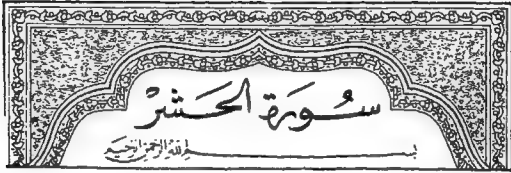 سُورَة الحَشْرْ
بسم الله الرحمن الرحيم